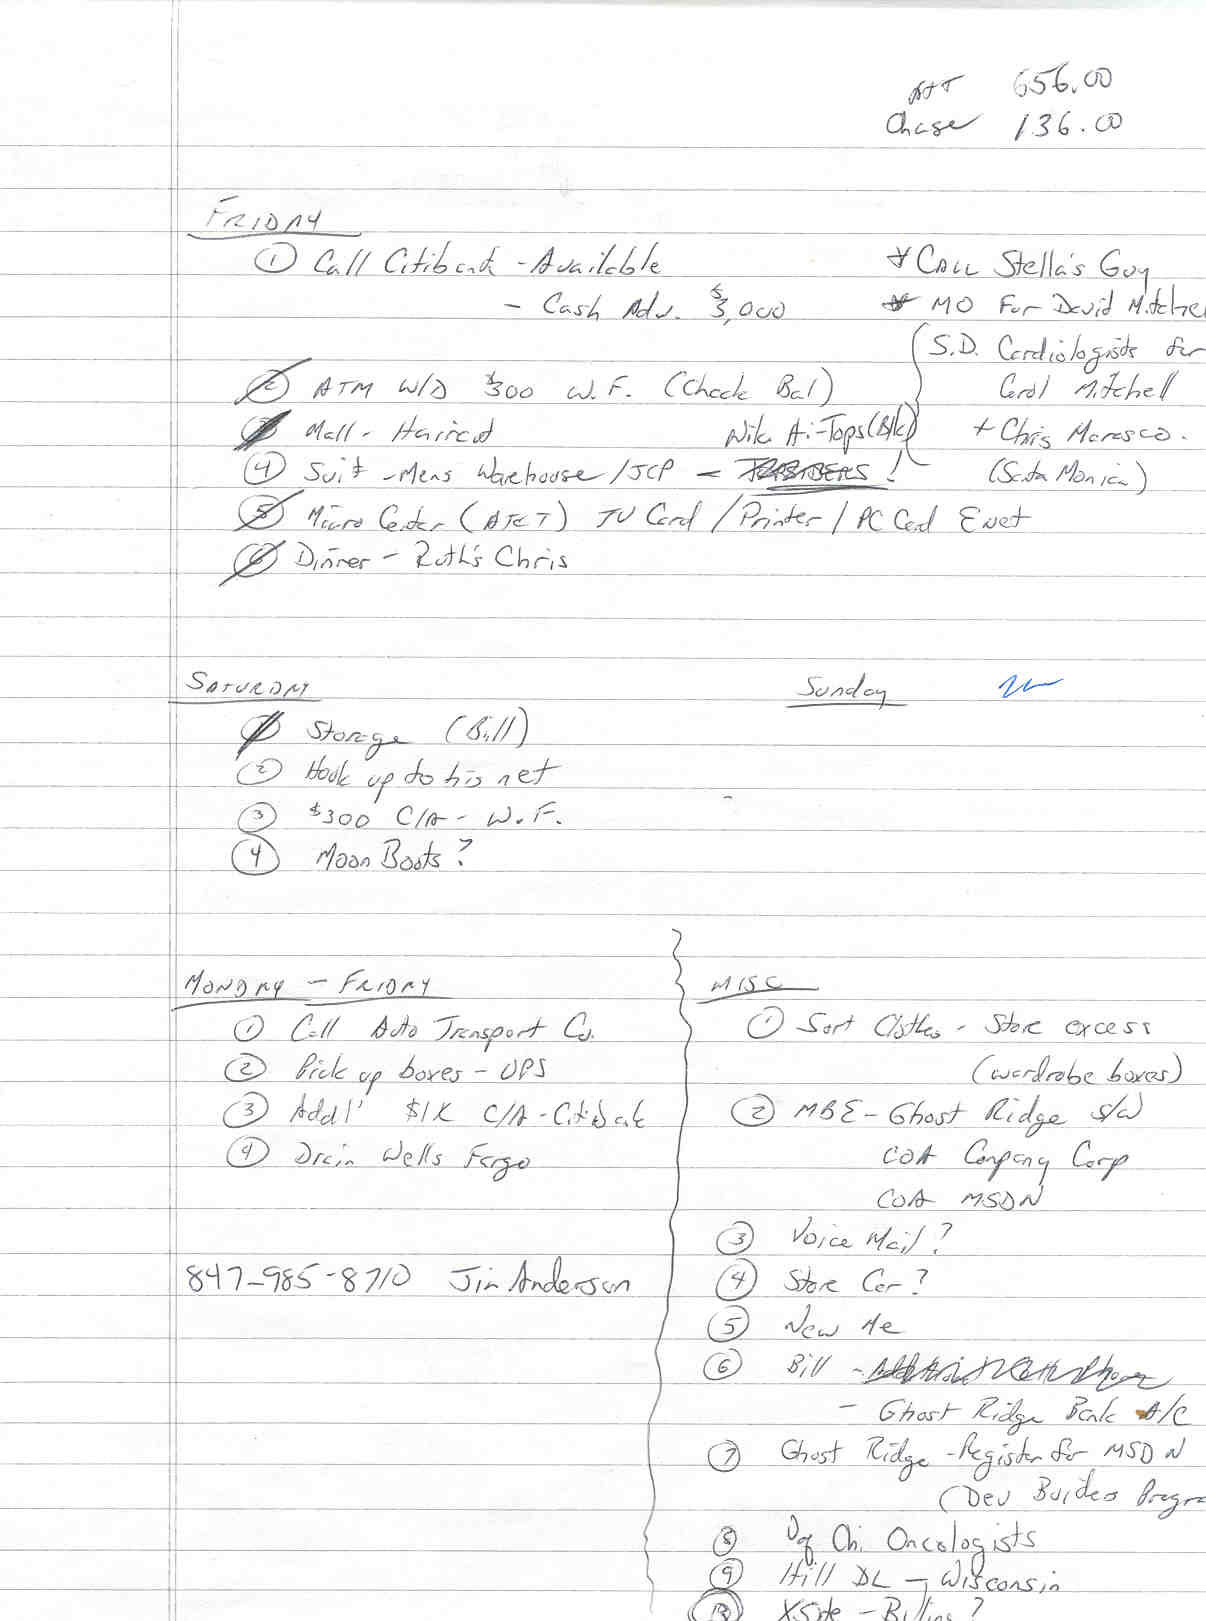 ATT 656.00
Chase 136.00
FRIDAY
① Call Citibank - Available
- Cash Adv. $3,000
② ATM W/D $300 W.F. (Check Bal)
③ Mall - Haircut
④ Suit - Mens Warehouse/JCP -
⑤ Micro Center (AT&T) TV Card / Printer / PC Card Enet
⑥ Dinner - Ruth's Chris
* CALL Stella's Guy
* MO For David Mitche
(S.D. Cardiologists for
Carol Mitchell
+ Chris Marasco.
(Santa Monica)
Hi-Tops (Blk)
SATURDAY
① Storage (Bill)
② Hook up to his net
③ $300 C/A - W.F.
④ Moon Boots?
Sunday
MONDAY - FRIDAY
① Call Auto Transport Co.
② Pick up boxes - UPS
③ Addl' $1K C/A - Citibank
④ Drain Wells Fargo
847-985-8710 Jim Anderson
MISC
① Sort Clothes - Store excess
(wardrobe boxes)
② MBE - Ghost Ridge s/w
COA Company Corp
COA MSDN
③ Voice Mail?
④ Store Car?
⑤ New Me
⑥ Bill -
- Ghost Ridge Bank A/C
⑦ Ghost Ridge - Register for MSDN
(Dev Buildes Progra
⑧ U of Chi. Oncologists
⑨ Hill DL - Wisconsin
XSite - Billing?